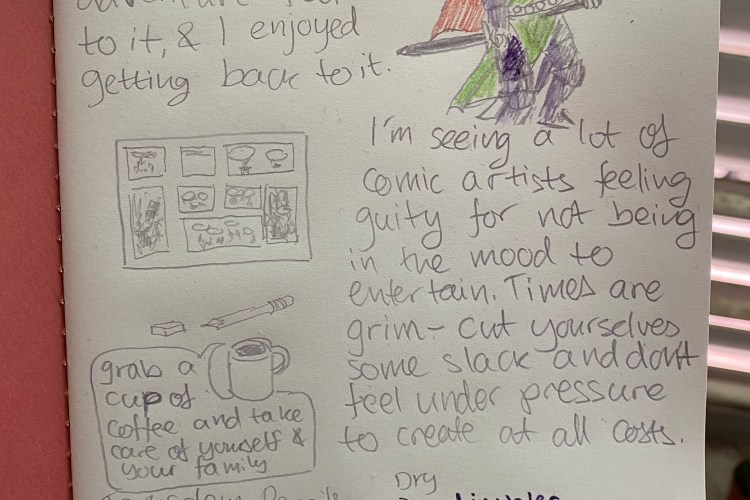 to it, & I enjoyed
getting back to it.
I'm seeing a lot of
comic artists feeling
guity for not being
in the mood to
entertain. Times are
grim - cut yourselves
some slack and don't
feel under pressure
to create at all costs.
grab a
cup of
coffee and take
care of yourself &
your family
Dry